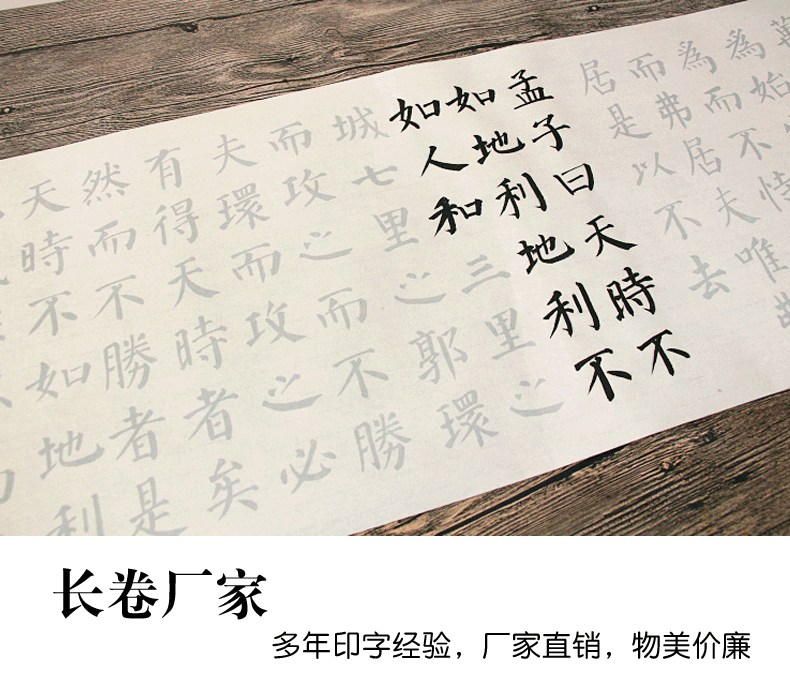 萬
為始
為而不恃
而弗居夫唯
居是以不去
孟子曰天時不
如地利地利不
如人和三里之
城七里之郭環
而攻之而不勝
夫環而攻之必
有得天時者矣
然而不勝者是
天時不如地利
长卷厂家
多年印字经验，厂家直销，物美价廉